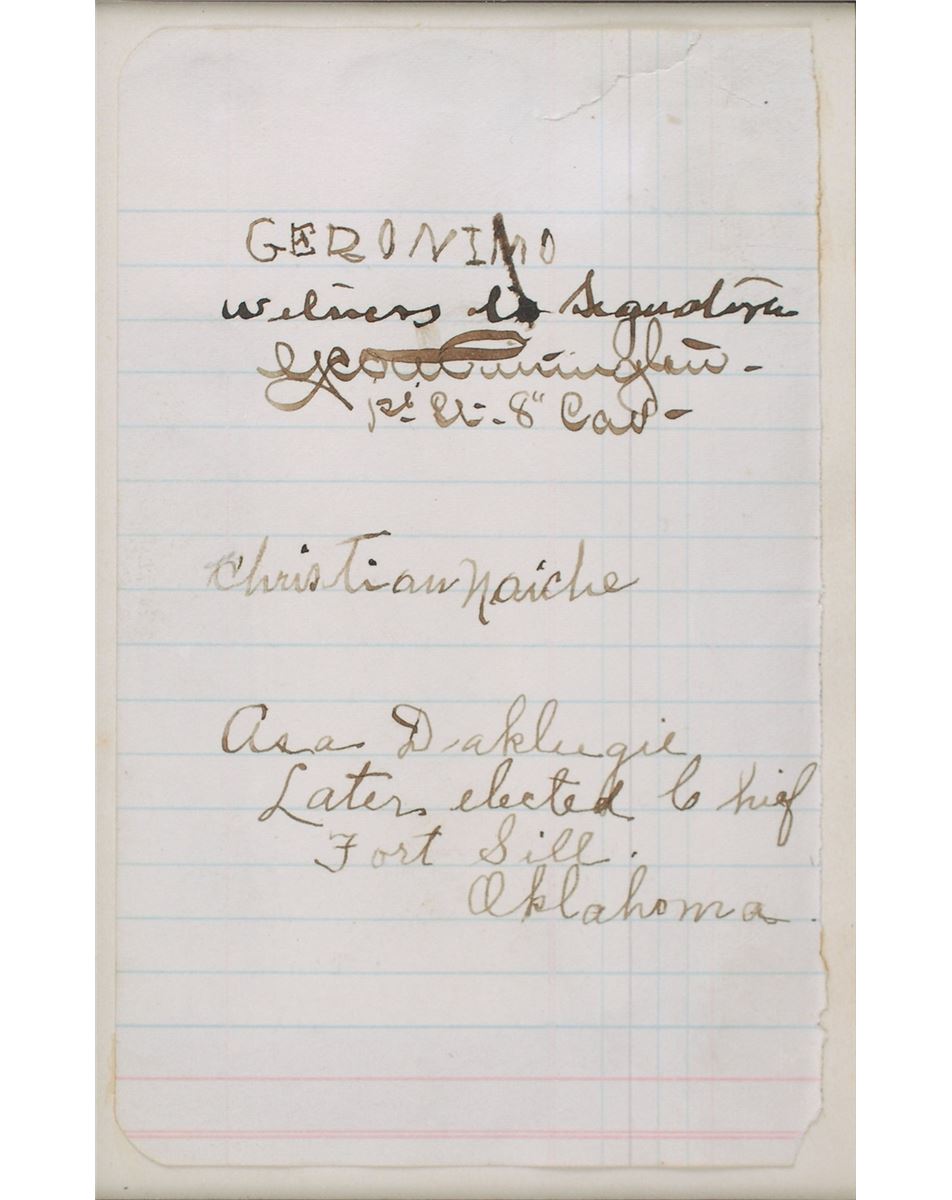 GERONIMO
Witness to Signature
1st Lt - 8" Cav -
Christian Naiche
Asa Daklugie
Later elected Chief
Fort Sill.
Oklahoma.